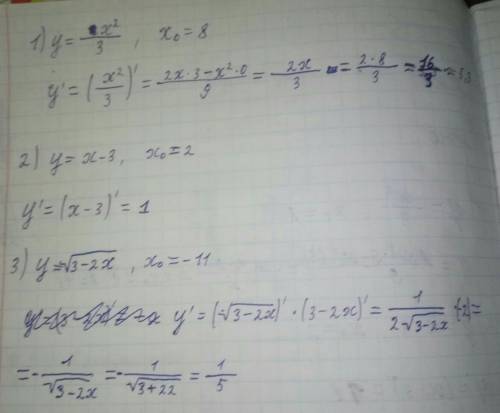 1) y = x²/3 , x₀ = 8
y' = (x²/3)' = (2x·3 − x²·0)/9 = 2x/3 = (2·8)/3 = 16/3
2) y = x−3, x₀ = 2
y' = (x−3)' = 1
3) y = √(3−2x) , x₀ = −11
y' = (√(3−2x))' · (3−2x)' = 1/(2√(3−2x)) · (−2) =
= −1/√(3−2x) = −1/√(3+22) = 1/5